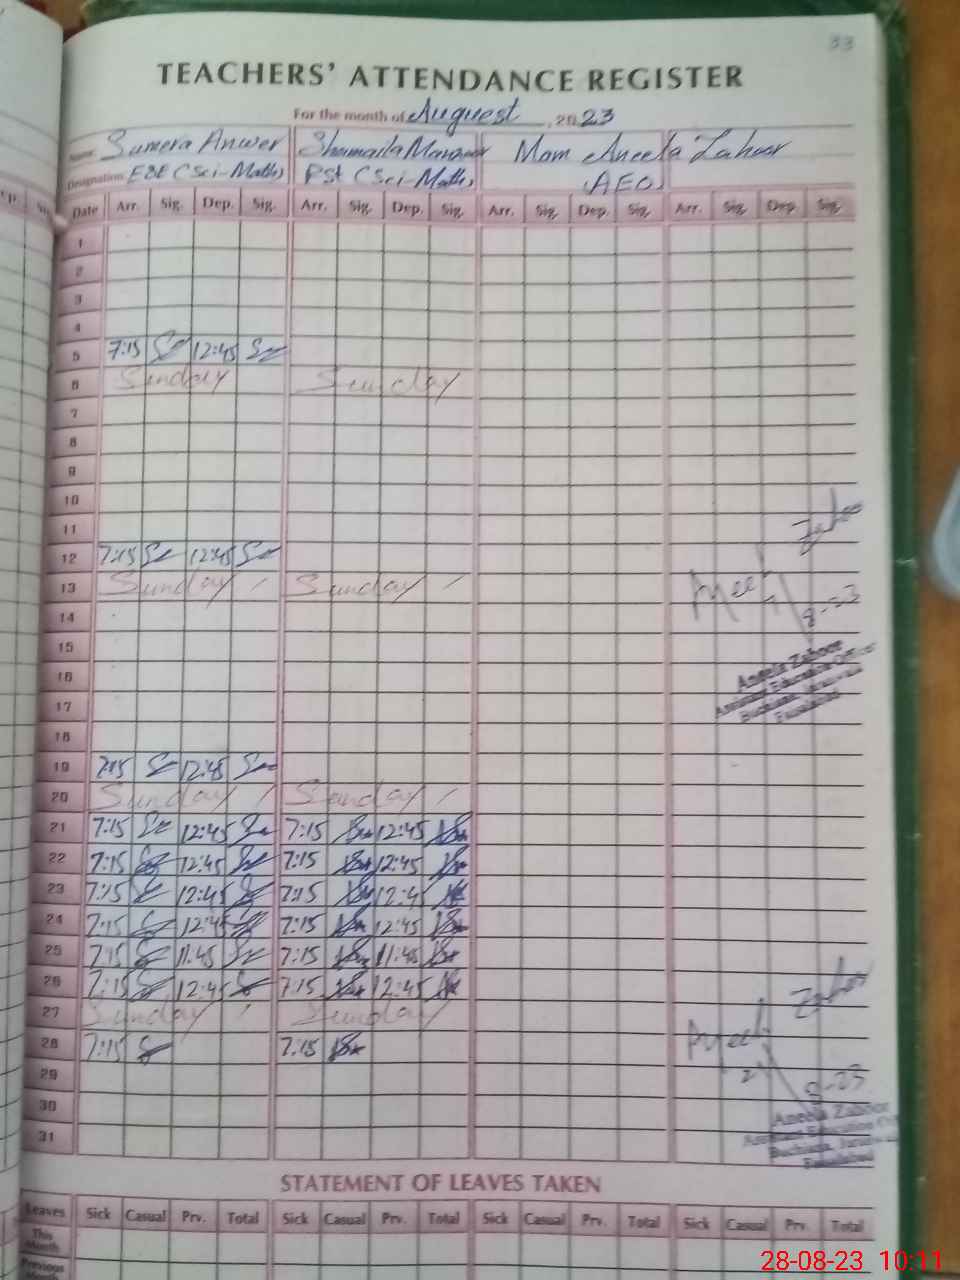 33
TEACHERS' ATTENDANCE REGISTER
For the month of Auguest, 2023
Name Sumera Anwer Shumaila Mam Aneela Zahoor
Designation ESE (Sci-Math) PST (Sci-Math) (AEO)
Date Arr. Sig. Dep. Sig. Arr. Sig. Dep. Sig. Arr. Sig. Dep. Sig. Arr. Sig. Dep. Sig.
1
2
3
4
5 7:15 12:45
6 Sunday Sunday
7
8
9
10
11
12 7:15 12:45
13 Sunday Sunday
14
15
16
17
18
19 7:15 12:45
20 Sunday Sunday
21 7:15 12:45 7:15 12:45
22 7:15 12:45 7:15 12:45
23 7:15 12:45 7:15 12:4
24 7:15 12:45 7:15 12:45
25 7:15 11:45 7:15 11:45
26 7:15 12:45 7:15 12:45
27 Sunday Sunday
28 7:15 7:15
29
30
31
Zahoor
8-23
Aneela Zahoor
Assistant Education Officer
Buchiana, Jaranwala
Faisalabad
Zahoor
8-23
Aneela Zahoor
Assistant Education
Buchiana,
Faisalabad
STATEMENT OF LEAVES TAKEN
Leaves Sick Casual Prv. Total Sick Casual Prv. Total Sick Casual Prv. Total Sick Casual Prv. Total
This Month
Previous Month
28-08-23 10:11